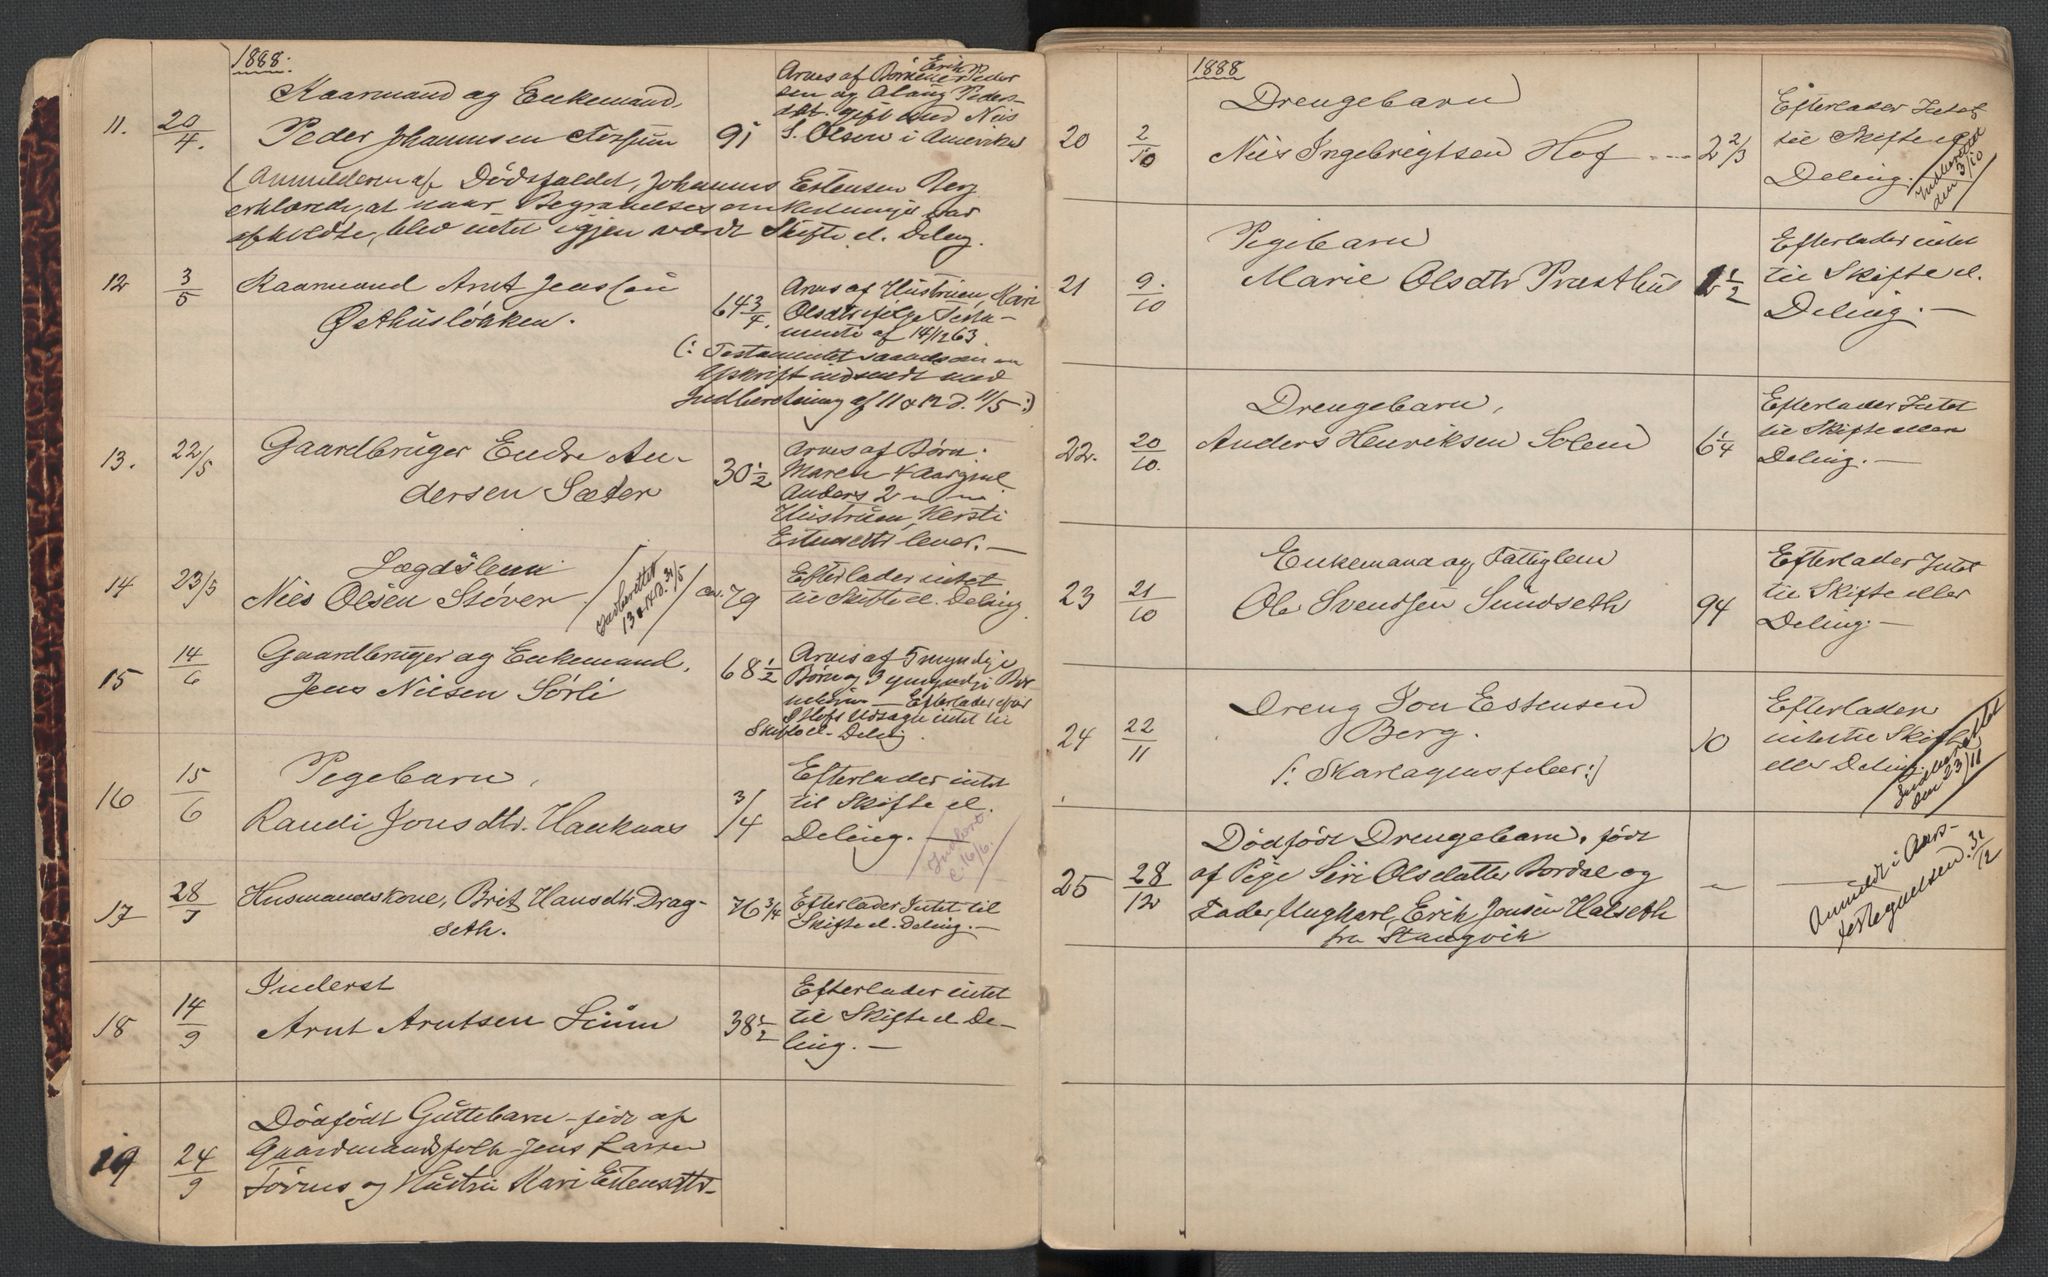 1888.
11.
20/4.
Kaarmand og Enkemand,
Peder Johannsen
91
Arves af Børnene Erik Peder
sen og Olaug Peders-
dtr. gift med Nils
S. Olsen i Amerika
(Anmelderen af Dødsfaldet, Johannes Estensen Berg
erklærede, at naar Begravelses omkostninger var
afholdte, blev intet igjen værdt Skifte el. Deling.
12
3/5
Kaarmand Arnt Jenssen
Østhusløkken.
64 3/4.
Arves af Hustruen, Mari
Olsdtr ifølge Testa-
mente af 14/12 63.
(: Testamentet saadsom en
Afskrift indsendt med
Indberetning af 11 & 12 d. 11/5 :)
13.
22/5
Gaardbruger Endre An-
dersen Sæter
30 1/2
Arves af Børn:
Maren 4 Aargml
Anders 2 " "
Hustruen, Kersti
Estensdtr lever. —
14
23/5
Lægdslem
Nils Olsen Støver
Indberettet
13 & 14 d. 31/5
ca. 79
Efterlader intet
til Skifte el. Deling.
15
14/6
Gaardbruger og Enkemand,
Jens Nilsen Sørli
68 1/2
Arves af 5 myndige
Børn og 3 umyndige Bør
nebørn — Efterlader efter
Udsagn intet til
Skifte el. Deling.
16
15/6
Pigebarn,
Randi Jonsdtr. Hauknæs
3/4
Efterlader intet
til Skifte el.
Deling.
Indber.
d. 16/6.
17
28/7
Husmandskone, Brit Hansdtr Drag-
seth.
76 3/4
Efterlader Intet til
Skifte el. Deling. —
18
14/9
Inderst
Arnt Arntsen
38 1/2
Efterlader intet
til Skifte el De-
ling. —
19
24/9
Dødfødt Guttebarn — født af
Gaardmandsfolk Jens Larsen
og Hustru Mari Estensdtr.
1888
20
2/10
Drengebarn
Nils Ingebrigtsen Hof
2 2/3
Efterlader Intet
til Skifte el
Deling.
Indberettet
den 3/10
21
9/10
Pigebarn
Marie Olsdtr Præsthus
1 1/2
Efterlader intet
til Skifte el.
Deling. —
22.
20/10.
Drengebarn,
Anders Henriksen Solem
6 1/4
Efterlader Intet
til Skifte eller
Deling. —
23
21/10
Enkemand og Fattiglem
Ole Svendsen Sundseth
94
Efterlader Intet
til Skifte eller
Deling. —
24
22/11
Dreng Jon Estensen
Berg.
(: Skarlagensfeber :)
10
Efterlader
intet til Skifte
eller Deling.
Indberettet
den 23/11
25
28/12
Dødfødt Drengebarn, født
af Pige Siri Olsdatter Bordal og
Fader Ungkarl, Erik Jonsen Halseth
fra Stangvik
—
Anmeldt i Aars-
fortegnelsen 31/12